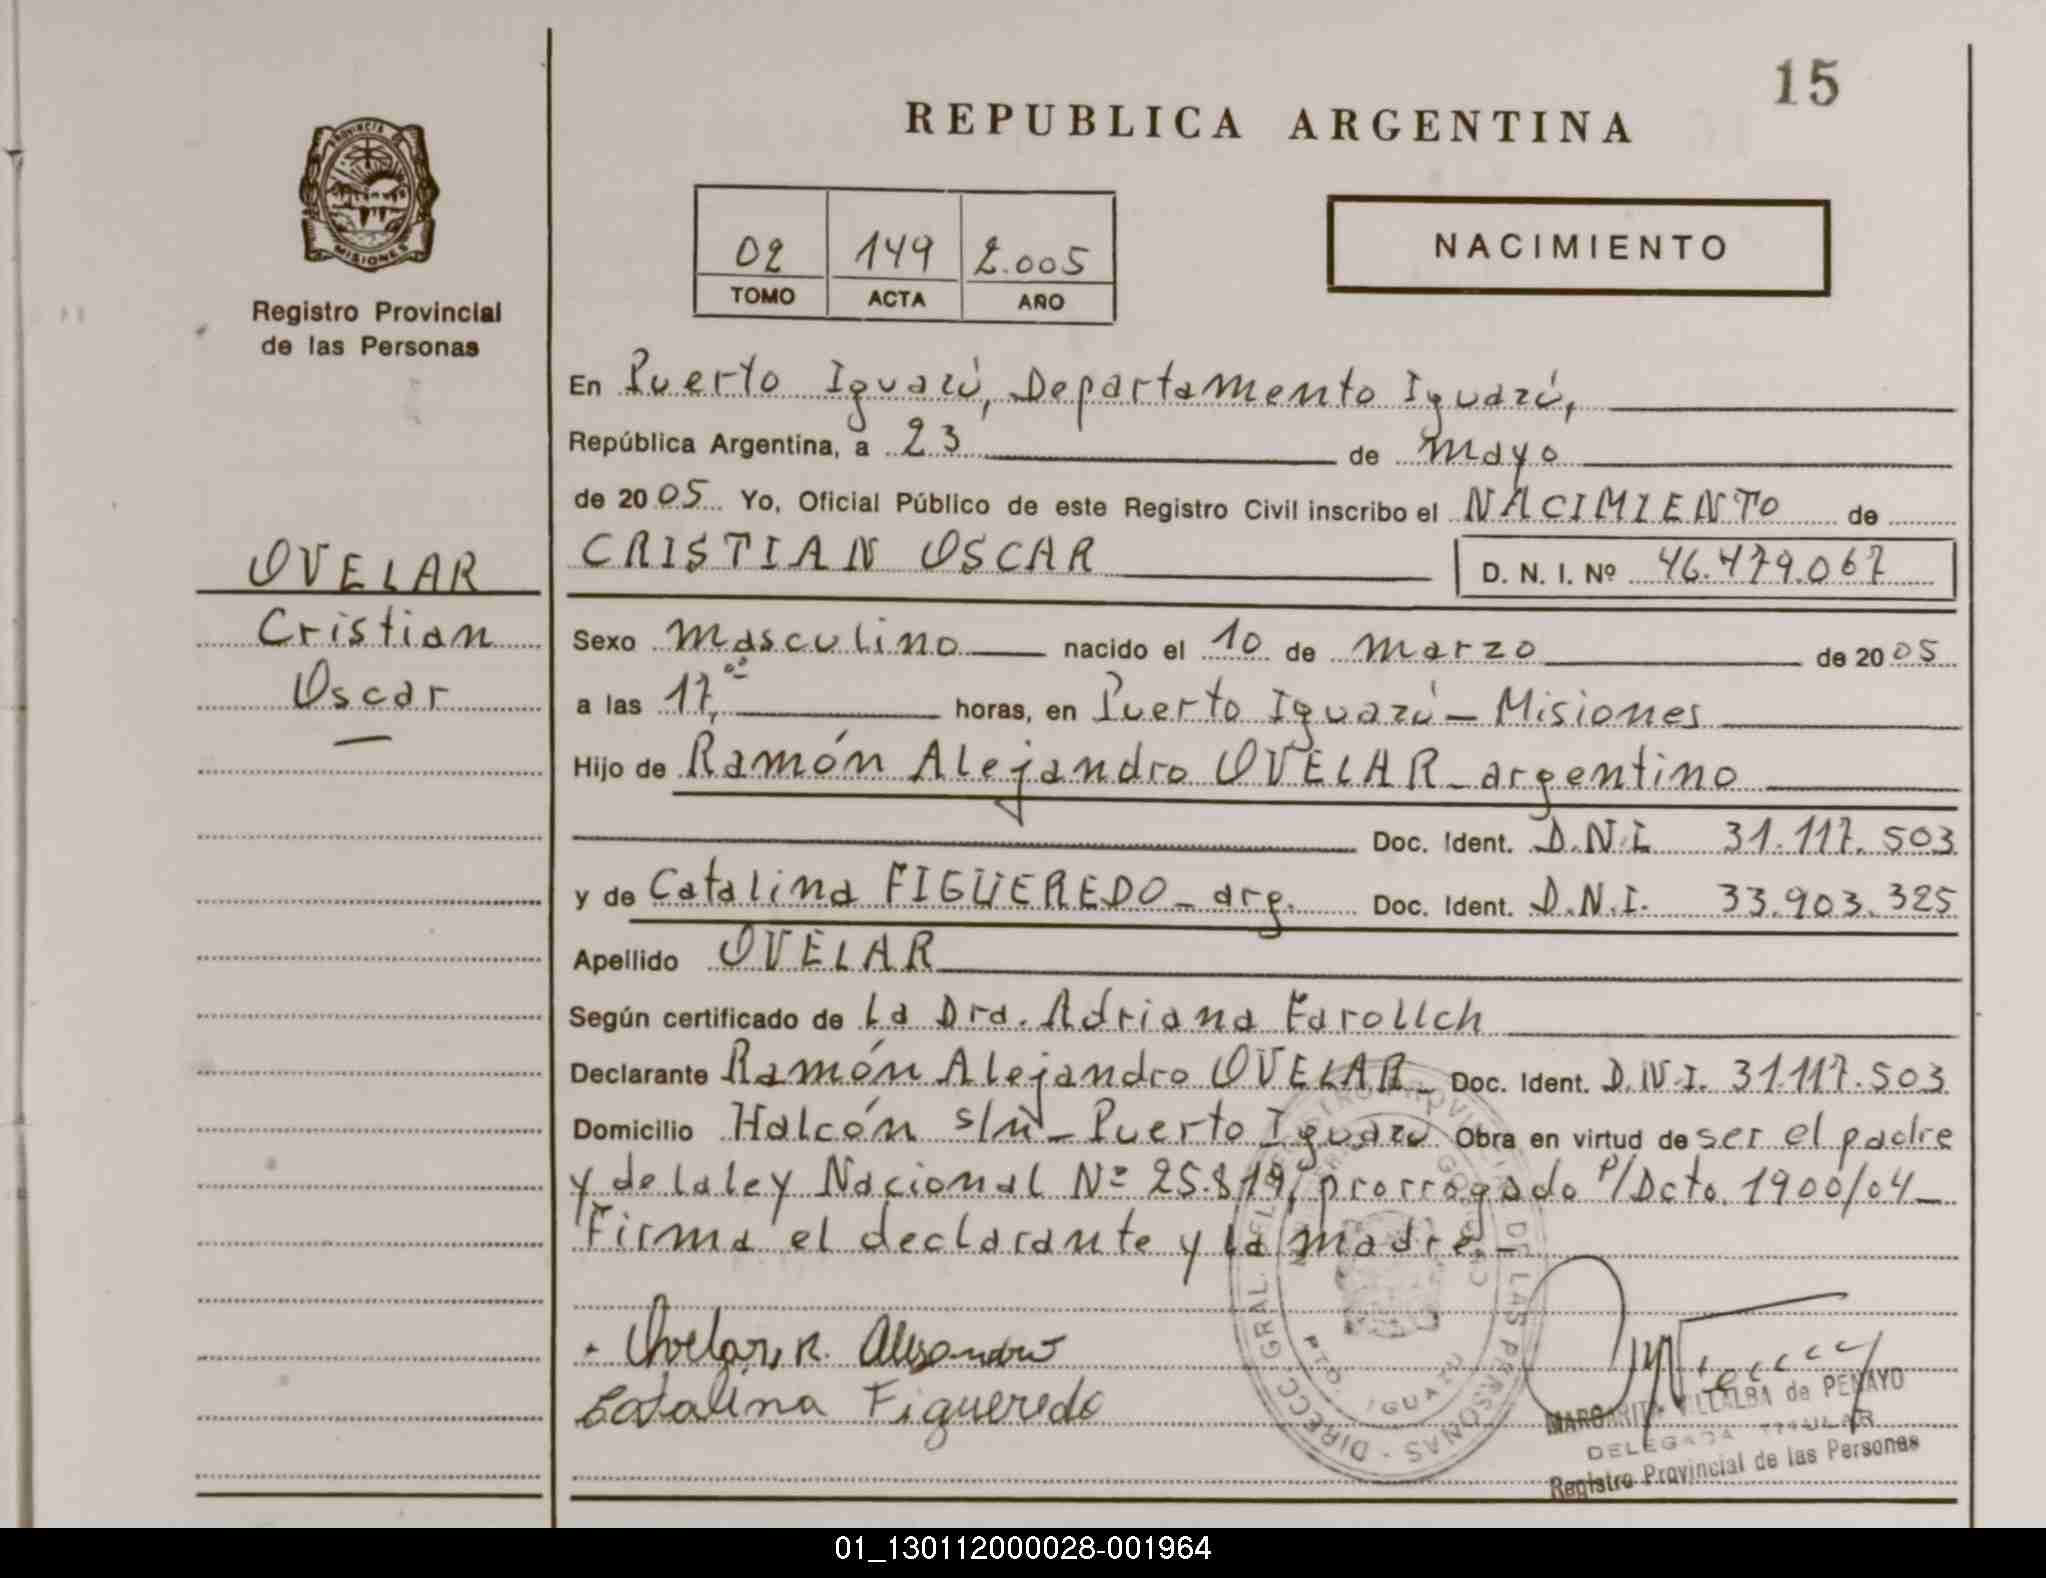 15
REPUBLICA ARGENTINA
PROVINCIA DE
MISIONES
Registro Provincial
de las Personas
02 149 2.005
TOMO ACTA AÑO
NACIMIENTO
En Puerto Iguazú, Departamento Iguazú,
República Argentina, a 23 de Mayo
de 2005 Yo, Oficial Público de este Registro Civil inscribo el NACIMIENTO de
CRISTIAN OSCAR D. N. I. Nº 46.479.067
OVELAR
Cristian
Oscar
Sexo Masculino nacido el 10 de Marzo de 2005
a las 17,00 horas, en Puerto Iguazú - Misiones
Hijo de Ramón Alejandro OVELAR - argentino
Doc. Ident. D.N.I. 31.117.503
y de Catalina FIGUEREDO - arg. Doc. Ident. D.N.I. 33.903.325
Apellido OVELAR
Según certificado de La Dra. Adriana Farollch
Declarante Ramón Alejandro OVELAR - Doc. Ident. D.N.I. 31.117.503
Domicilio Halcón s/n - Puerto Iguazú Obra en virtud de ser el padre
y de la ley Nacional Nº 25.819, prorrogado p/Dcto. 1900/04 -
Firma el declarante y la madre -
Ovelar, R. Alejandro
Catalina Figueredo
DIRECC. GRAL. DEL REGISTRO PROVINCIAL DE LAS PERSONAS
PTO. IGUAZU
MARGARITA VILLALBA de PENAYO
DELEGADA TITULAR
Registro Provincial de las Personas
01_130112000028-001964